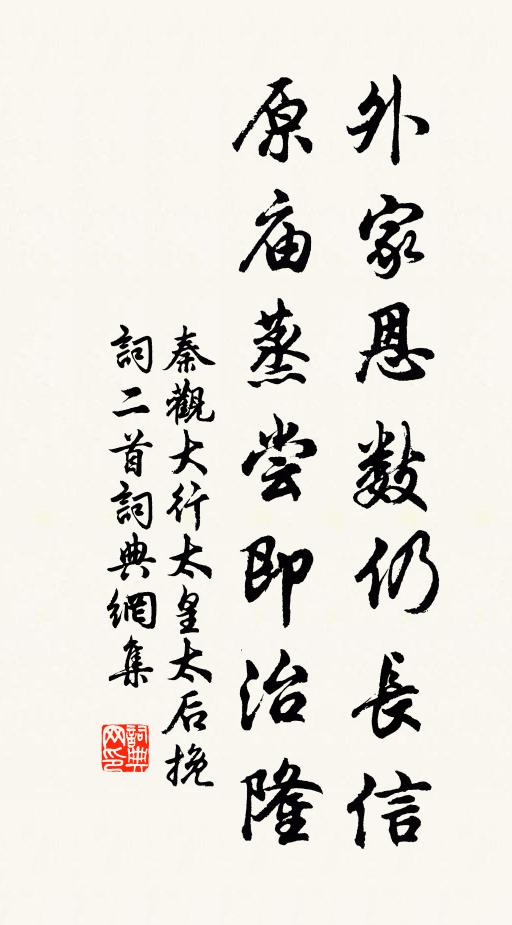 外家恩数仍長信
原庙蒸尝即治隆
秦觀大行太皇太后挽
詞二首詞典網集
詞典
网印